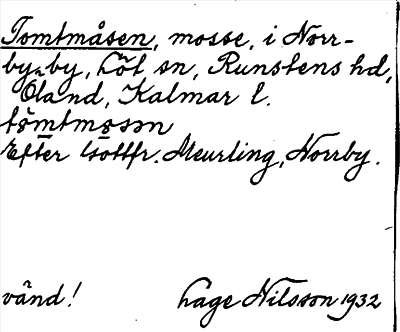 Tomtmåsen, mosse, i Norr-
by by, Löt sn, Runstens hd,
Öland, Kalmar l.
Efter Meurling, Norrby.
vänd! Lage Nilsson 1932